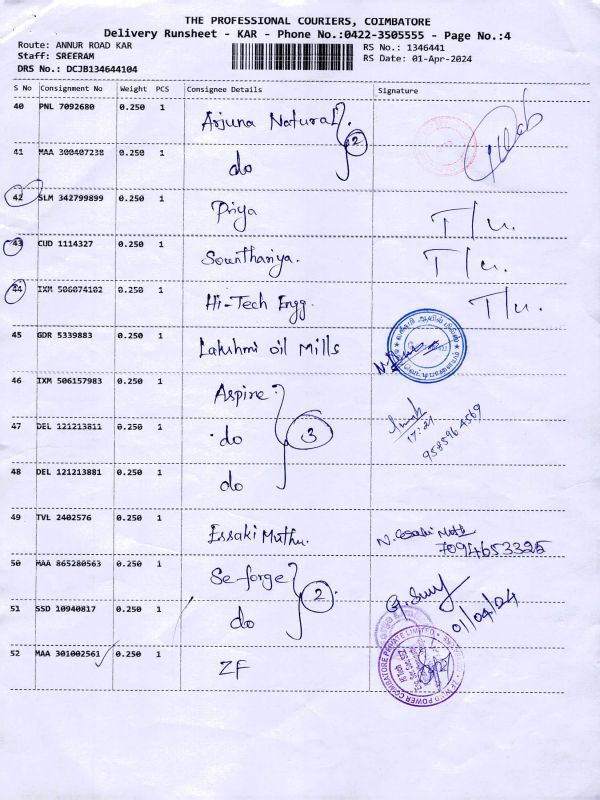 THE PROFESSIONAL COURIERS, COIMBATORE
Delivery Runsheet - KAR - Phone No.:0422-3505555 - Page No.:4
Route: ANNUR ROAD KAR
RS No.: 1346441
Staff: SREERAM
RS Date: 01-Apr-2024
DRS No.: DCJB134644104
S No Consignment No Weight PCS Consignee Details Signature
40 PNL 7092680 0.250 1 Arjuna Natural
2
41 MAA 300407238 0.250 1 do
42 SLM 342799899 0.250 1 Priya T/u.
43 CUD 1114327 0.250 1 Sounthariya. T/u.
44 IXM 506074102 0.250 1 Hi-Tech Engg. T/u.
45 GDR 5339883 0.250 1 Lakshmi oil Mills
46 IXM 506157983 0.250 1 Aspire
47 DEL 121213811 0.250 1 do 3 17:21
9585964569
48 DEL 121213881 0.250 1 do
49 TVL 2402576 0.250 1 Essaki Muthu. N. Essaki Muth
7094653325
50 MAA 865280563 0.250 1 Se-forge
2
51 SSD 10940817 0.250 1 do 01/04/24
52 MAA 301002561 0.250 1 ZF